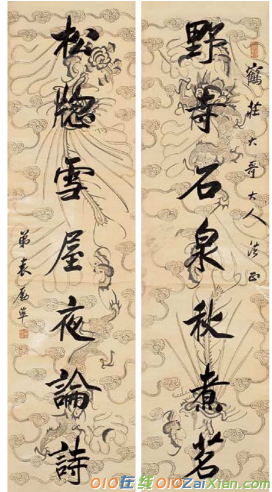 鶴莊大哥大人法正
野寺石泉秋煮茗
松牕雪屋夜論詩
弟袁勵準
010在线010ZaiXian.com